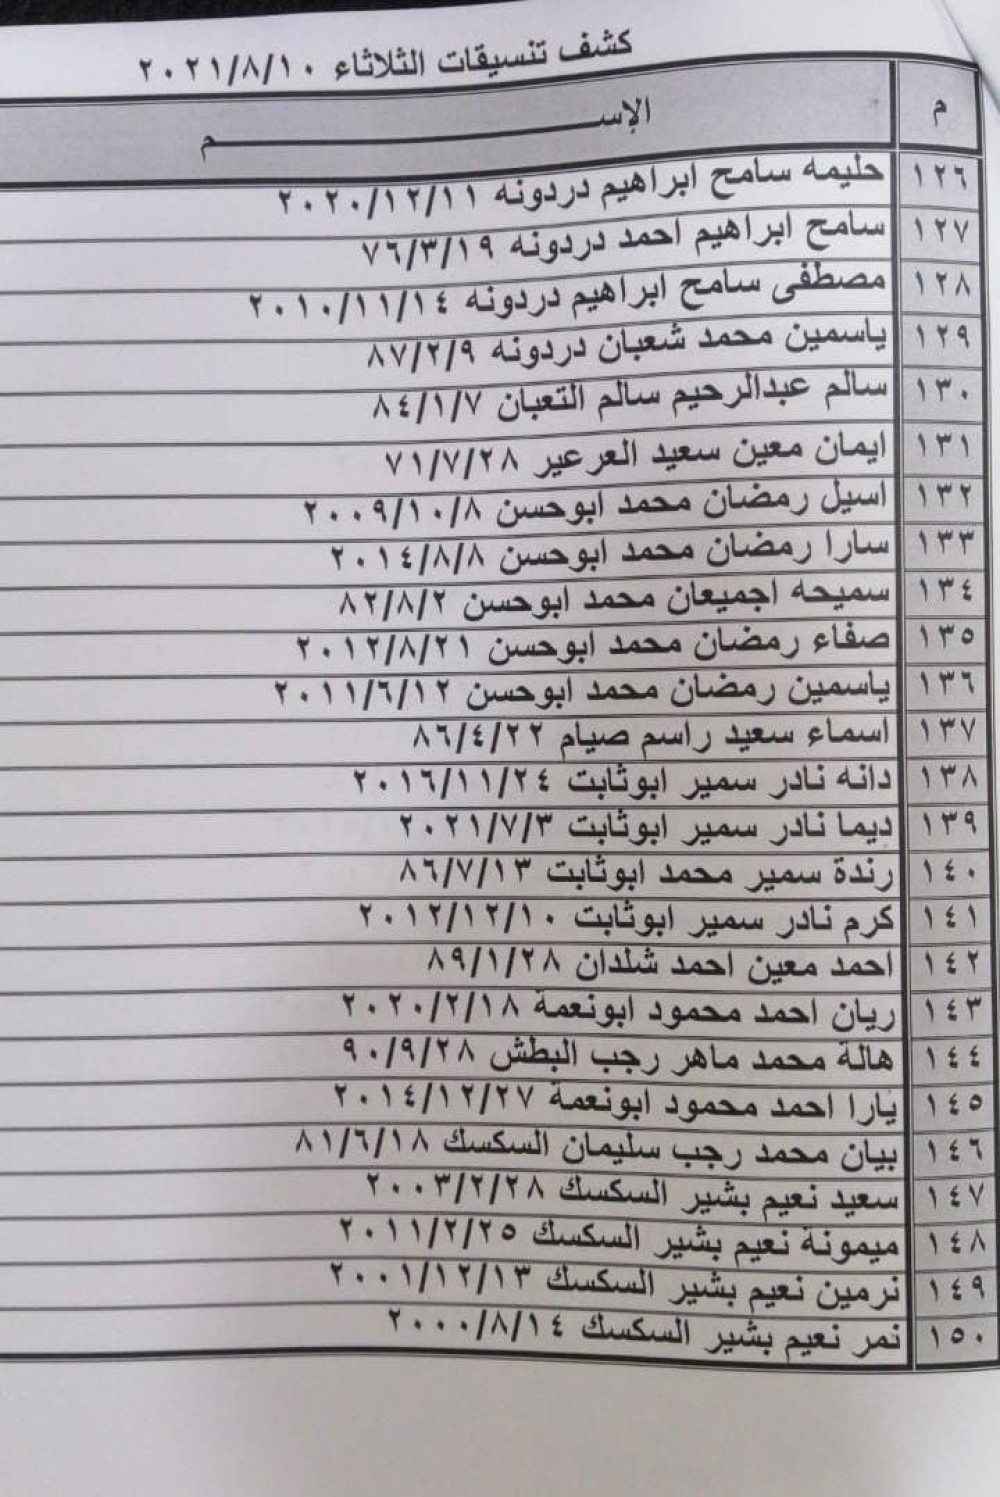 كشف تنسيقات الثلاثاء ٢٠٢١/٨/١٠
م الإســـــــــــــــم
١٢٦ حليمه سامح ابراهيم دردونه ٢٠٢٠/١٢/١١
١٢٧ سامح ابراهيم احمد دردونه ٧٦/٣/١٩
١٢٨ مصطفى سامح ابراهيم دردونه ٢٠١٠/١١/١٤
١٢٩ ياسمين محمد شعبان دردونه ٨٧/٢/٩
١٣٠ سالم عبدالرحيم سالم التعبان ٨٤/١/٧
١٣١ ايمان معين سعيد العرعير ٧١/٧/٢٨
١٣٢ اسيل رمضان محمد ابوحسن ٢٠٠٩/١٠/٨
١٣٣ سارا رمضان محمد ابوحسن ٢٠١٤/٨/٨
١٣٤ سميحه اجميعان محمد ابوحسن ٨٢/٨/٢
١٣٥ صفاء رمضان محمد ابوحسن ٢٠١٢/٨/٢١
١٣٦ ياسمين رمضان محمد ابوحسن ٢٠١١/٦/١٢
١٣٧ اسماء سعيد راسم صيام ٨٦/٤/٢٢
١٣٨ دانه نادر سمير ابوثابت ٢٠١٦/١١/٢٤
١٣٩ ديما نادر سمير ابوثابت ٢٠٢١/٧/٣
١٤٠ رندة سمير محمد ابوثابت ٨٦/٧/١٣
١٤١ كرم نادر سمير ابوثابت ٢٠١٢/١٢/١٠
١٤٢ احمد معين احمد شلدان ٨٩/١/٢٨
١٤٣ ريان احمد محمود ابونعمة ٢٠٢٠/٢/١٨
١٤٤ هالة محمد ماهر رجب البطش ٩٠/٩/٢٨
١٤٥ يارا احمد محمود ابونعمة ٢٠١٤/١٢/٢٧
١٤٦ بيان محمد رجب سليمان السكسك ٨١/٦/١٨
١٤٧ سعيد نعيم بشير السكسك ٢٠٠٣/٢/٢٨
١٤٨ ميمونة نعيم بشير السكسك ٢٠١١/٢/٢٥
١٤٩ نرمين نعيم بشير السكسك ٢٠٠١/١٢/١٣
١٥٠ نمر نعيم بشير السكسك ٢٠٠٠/٨/١٤